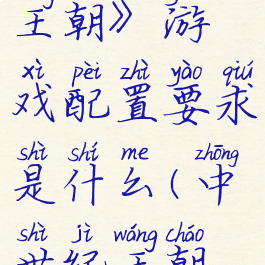 王朝》游
xì pèi zhì yào qiú
戏配置要求
shì shí me zhōng
是什么(中
shì jì wáng cháo
世纪王朝